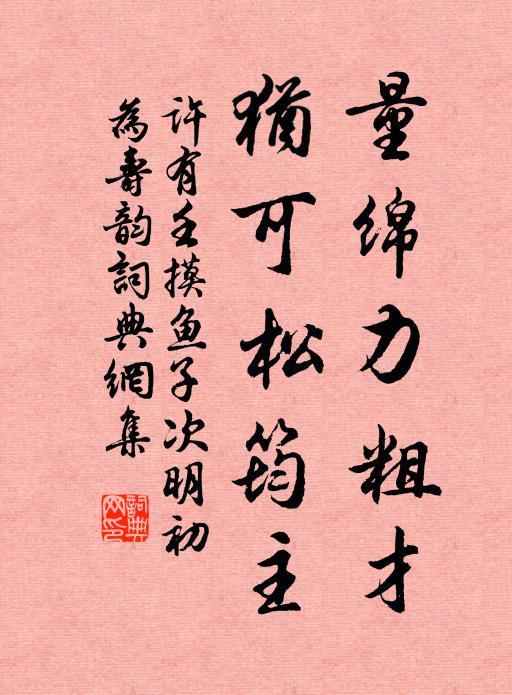 量绵力粗才
猶可松筠主
许有壬摸鱼子次明初
為壽韵詞典網集
詞典
网印